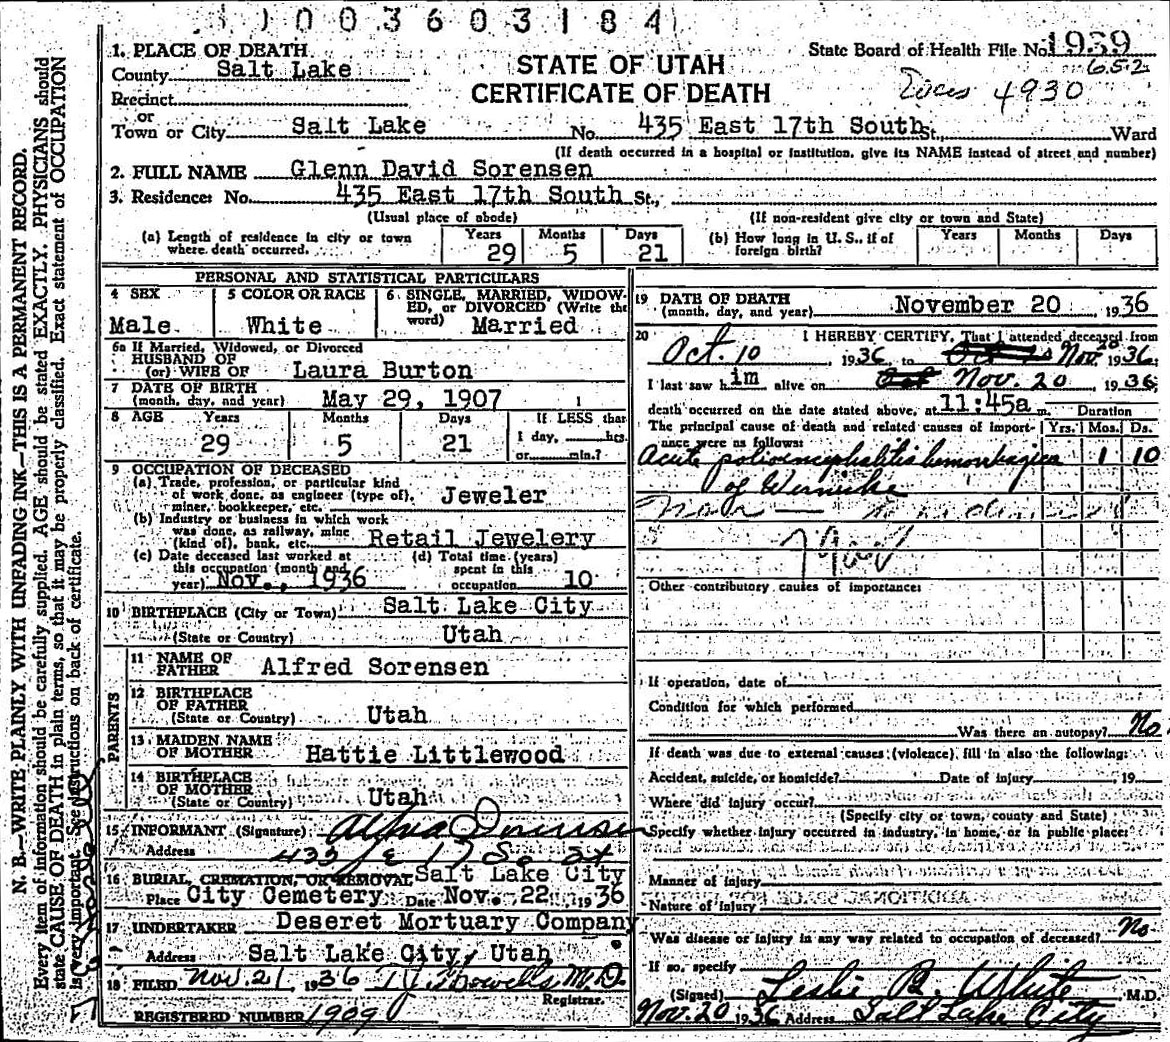 1003603184
1. PLACE OF DEATH
County Salt Lake
Precinct
or
Town or City Salt Lake No. 435 East 17th South St., Ward
STATE OF UTAH
CERTIFICATE OF DEATH
State Board of Health File No. 1939
652
4930
(If death occurred in a hospital or institution, give its NAME instead of street and number)
2. FULL NAME Glenn David Sorensen
3. Residence: No. 435 East 17th South St.,
(Usual place of abode) (If non-resident give city or town and State)
(a) Length of residence in city or town where death occurred. Years 29 Months 5 Days 21
(b) How long in U. S., if of foreign birth? Years Months Days
PERSONAL AND STATISTICAL PARTICULARS
4 SEX Male
5 COLOR OR RACE White
6 SINGLE, MARRIED, WIDOWED, or DIVORCED (Write the word) Married
6a If Married, Widowed, or Divorced
HUSBAND OF
(or) WIFE OF Laura Burton
7 DATE OF BIRTH
(month, day, and year) May 29, 1907
8 AGE Years 29 Months 5 Days 21 If LESS than 1 day, hrs. or min.?
9 OCCUPATION OF DECEASED
(a) Trade, profession, or particular kind
of work done, as engineer (type of),
miner, bookkeeper, etc. Jeweler
(b) Industry or business in which work
was done, as railway, mine
(kind of), bank, etc. Retail Jewelery
(c) Date deceased last worked at this occupation (month and year) Nov., 1936
(d) Total time (years) spent in this occupation 10
10 BIRTHPLACE (City or Town) Salt Lake City
(State or Country) Utah
PARENTS
11 NAME OF FATHER Alfred Sorensen
12 BIRTHPLACE OF FATHER
(State or Country) Utah
13 MAIDEN NAME OF MOTHER Hattie Littlewood
14 BIRTHPLACE OF MOTHER
(State or Country) Utah
15 INFORMANT (Signature) Sorensen
Address 433 E 17 So St
16 BURIAL, CREMATION, OR REMOVAL Salt Lake City
Place City Cemetery Date Nov. 22 1936
17 UNDERTAKER Deseret Mortuary Company
Address Salt Lake City, Utah
18 FILED Nov. 21 1936 M.D.
Registrar.
REGISTERED NUMBER 1909
19 DATE OF DEATH
(month, day, and year) November 20, 1936
20 I HEREBY CERTIFY, That I attended deceased from
Oct. 10 1936 to Nov. 20 1936;
I last saw him alive on Nov. 20 1936;
death occurred on the date stated above, at 11:45a m. Duration
The principal cause of death and related causes of importance were as follows: Yrs. Mos. Ds.
Acute polioencephalitis hemorrhagica 1 10
of Wernicke
Other contributory causes of importance:
If operation, date of
Condition for which performed
Was there an autopsy? No.
If death was due to external causes (violence), fill in also the following:
Accident, suicide, or homicide? Date of injury 19
Where did injury occur?
(Specify city or town, county and State)
Specify whether injury occurred in industry, in home, or in public place:
Manner of injury
Nature of injury
Was disease or injury in any way related to occupation of deceased? No
If so, specify
(Signed) Leslie B. White M.D.
Nov. 20 1936 Address Salt Lake City
N. B.—WRITE PLAINLY WITH UNFADING INK—THIS IS A PERMANENT RECORD.
Every item of information should be carefully supplied. AGE should be stated EXACTLY. PHYSICIANS should
state CAUSE OF DEATH in plain terms, so that it may be properly classified. Exact statement of OCCUPATION
is very important. See instructions on back of certificate.